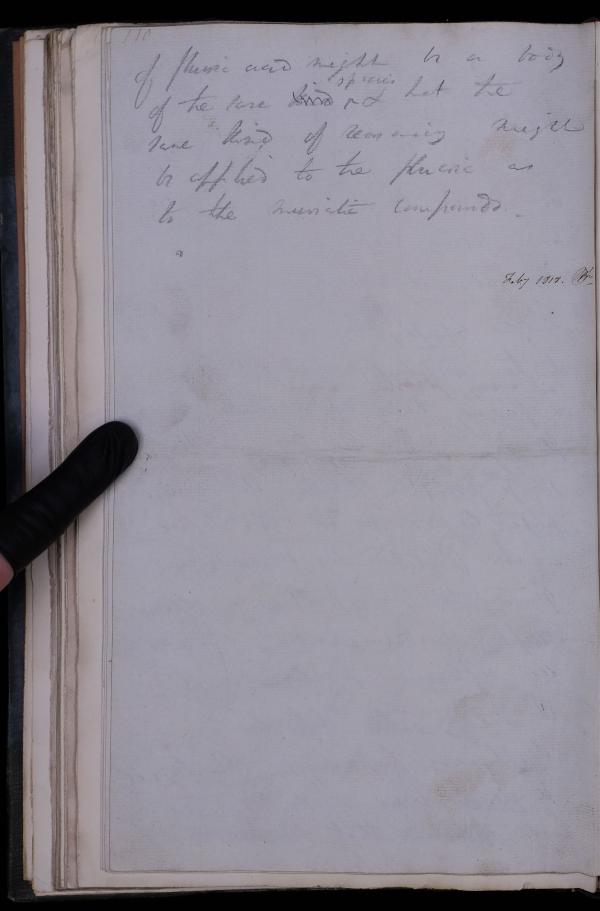 110
of fluoric acid might be a body
species
of the same kind & that the
same kind of reasoning might
be applied to the fluoric as
to the muriatic compounds.
Feby